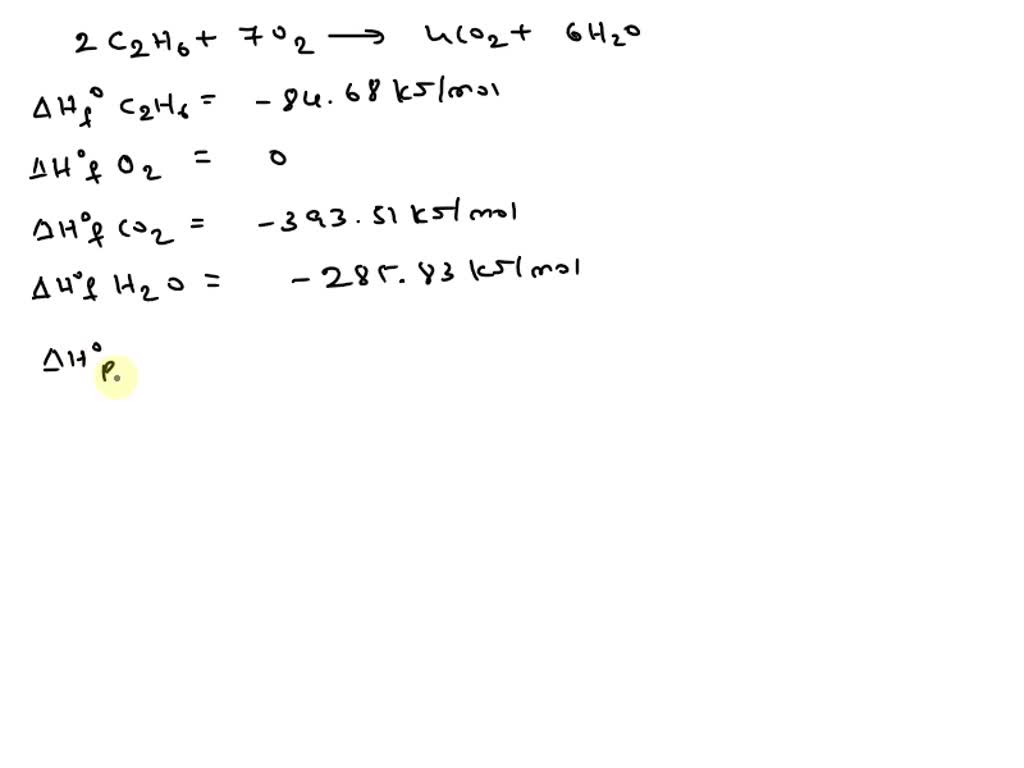 2 C₂H₆ + 7O₂ → 4CO₂ + 6H₂O
ΔHf° C₂H₆ = -84.68 kJ/mol
ΔH°f O₂ = 0
ΔH°f CO₂ = -393.51 kJ/mol
ΔH°f H₂O = -285.83 kJ/mol
ΔH°